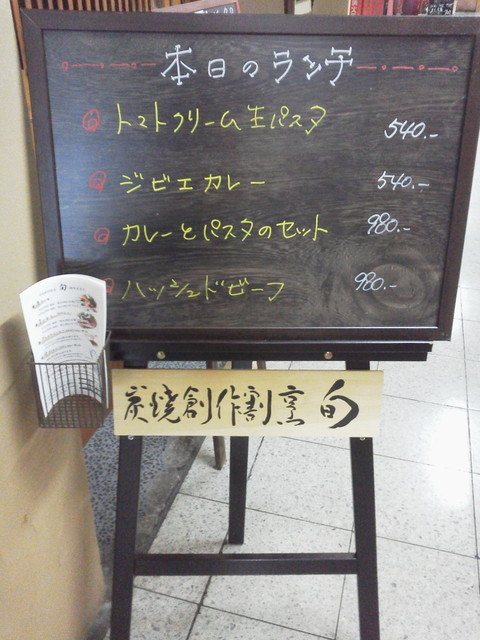 本日のランチ
トマトクリーム生パスタ 540.-
ジビエカレー 540.-
カレーとパスタのセット 980.-
ハッシュドビーフ 980.-
旬
炭焼創作割烹 旬